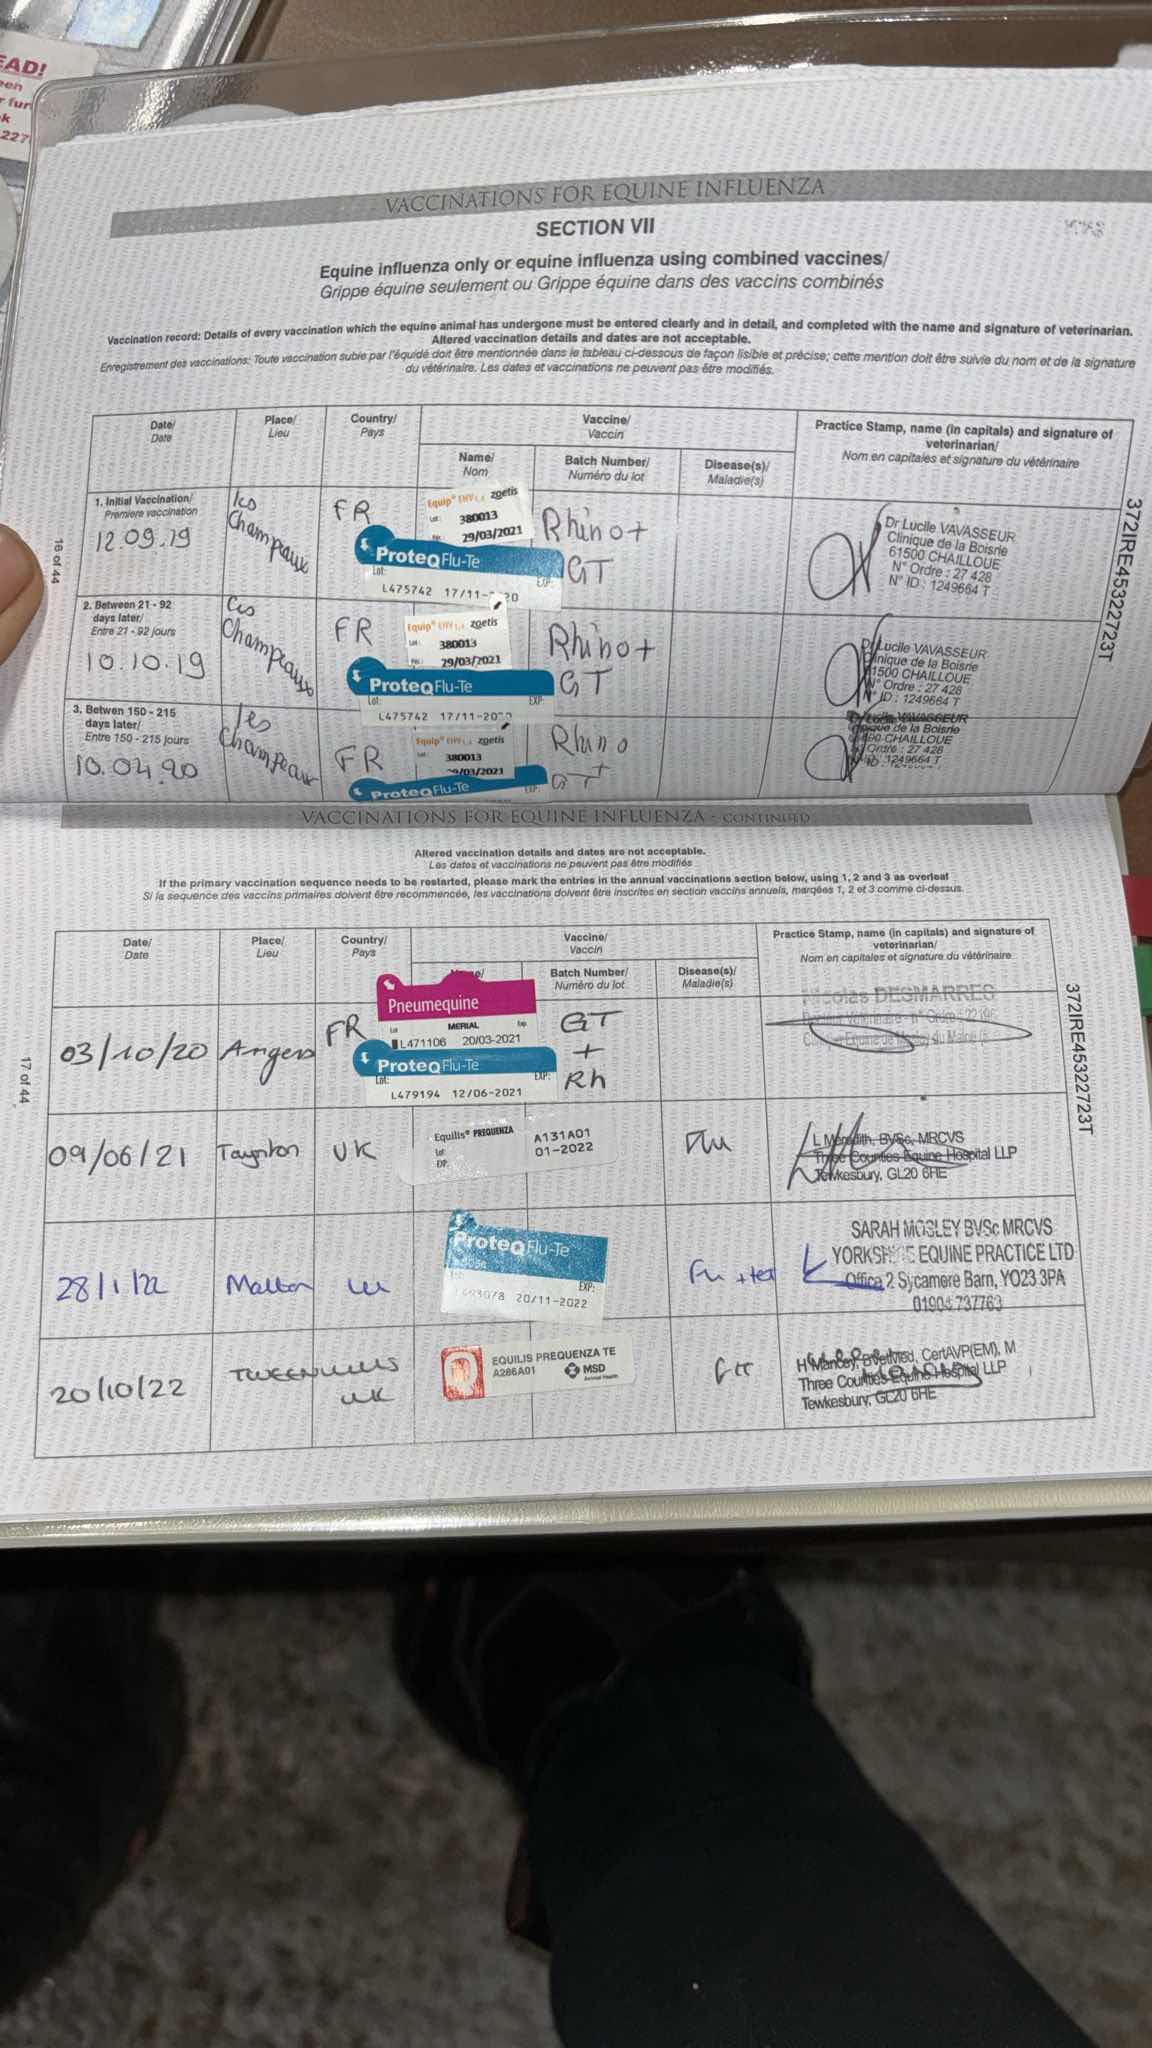 EAD!
een
r fur
k
227
VACCINATIONS FOR EQUINE INFLUENZA
SECTION VII
Equine influenza only or equine influenza using combined vaccines/
Grippe équine seulement ou Grippe équine dans des vaccins combinés
Vaccination record: Details of every vaccination which the equine animal has undergone must be entered clearly and in detail, and completed with the name and signature of veterinarian.
Altered vaccination details and dates are not acceptable.
Enregistrement des vaccinations: Toute vaccination subie par l'équidé doit être mentionnée dans le tableau ci-dessous de façon lisible et précise; cette mention doit être suivie du nom et de la signature
du vétérinaire. Les dates et vaccinations ne peuvent pas être modifiés.
Date/
Date
Place/
Lieu
Country/
Pays
Vaccine/
Vaccin
Name/
Nom
Batch Number/
Numéro du lot
Disease(s)/
Maladie(s)
Practice Stamp, name (in capitals) and signature of
veterinarian/
Nom en capitales et signature du vétérinaire
1. Initial Vaccination/
Premiere vaccination
12.09.19
les
Champeaux
FR
Equip® EHV 1,4 zoetis
Lot: 380013
29/03/2021
ProteqFlu-Te
Lot: EXP:
L475742 17/11-2020
Rhino+
GT
Dr Lucile VAVASSEUR
Clinique de la Boisrie
61500 CHAILLOUE
N° Ordre : 27 428
N° ID : 1249664 T
2. Between 21 - 92
days later/
Entre 21 - 92 jours
10.10.19
Les
Champeaux
FR
Equip® EHV 1,4 zoetis
Lot: 380013
29/03/2021
ProteqFlu-Te
Lot: EXP:
L475742 17/11-20
Rhino+
GT
Lucile VAVASSEUR
Clinique de la Boisrie
61500 CHAILLOUE
N° Ordre : 27 428
N° ID : 1249664 T
3. Betwen 150 - 215
days later/
Entre 150 - 215 jours
10.04.20
les
Champeaux
FR
Equip® EHV 1,4 zoetis
Lot: 380013
29/03/2021
ProteqFlu-Te
EXP:
Rhino
+
GT
Dr Lucile VAVASSEUR
Clinique de la Boisrie
CHAILLOUE
Ordre : 27 428
ID : 1249664 T
16 of 44
372IRE45322723T
VACCINATIONS FOR EQUINE INFLUENZA - CONTINUED
Altered vaccination details and dates are not acceptable.
Les dates et vaccinations ne peuvent pas être modifiés
If the primary vaccination sequence needs to be restarted, please mark the entries in the annual vaccinations section below, using 1, 2 and 3 as overleaf
Si la sequence des vaccins primaires doivent être recommencée, les vaccinations doivent être inscrites en section vaccins annuels, marquées 1, 2 et 3 comme ci-dessus.
Date/
Date
Place/
Lieu
Country/
Pays
Vaccine/
Vaccin
Batch Number/
Numéro du lot
Disease(s)/
Maladie(s)
Practice Stamp, name (in capitals) and signature of
veterinarian/
Nom en capitales et signature du vétérinaire
03/10/20
Angers
FR
Pneumequine
Lot MERIAL Exp
L471106 20/03-2021
ProteqFlu-Te
Lot: EXP:
L479194 12/06-2021
GT
+
Rh
Nicolas DESMARRES
09/06/21
Taynton
UK
Equilis® PREQUENZA
Lot:
EXP:
A131A01
01-2022
Flu
L Meredith, BVSc, MRCVS
Three Counties Equine Hospital LLP
Tewkesbury, GL20 6HE
28/1/22
Malton
UK
ProteqFlu-Te
EXP:
20/11-2022
Flu + tet
SARAH MOSLEY BVSc MRCVS
YORKSHIRE EQUINE PRACTICE LTD
Office 2 Sycamore Barn, YO23 3PA
01904 737763
20/10/22
UK
EQUILIS PREQUENZA TE
A286A01
MSD
Animal Health
H Mancey, BVetMed, CertAVP(EM), M
Three Counties Equine Hospital LLP
Tewkesbury, GL20 6HE
17 of 44
372IRE45322723T